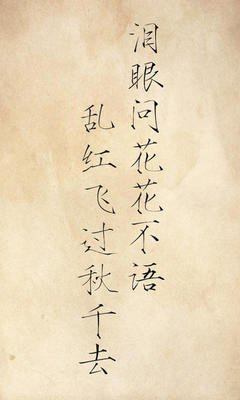 泪眼问花花不语
乱红飞过秋千去